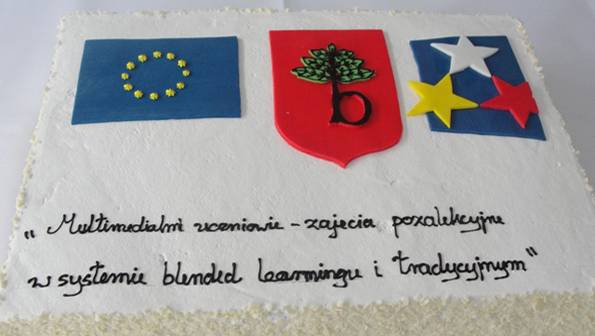 b
„Multimedialni uczniowie - zajęcia pozalekcyjne
w systemie blended learningu i tradycyjnym”